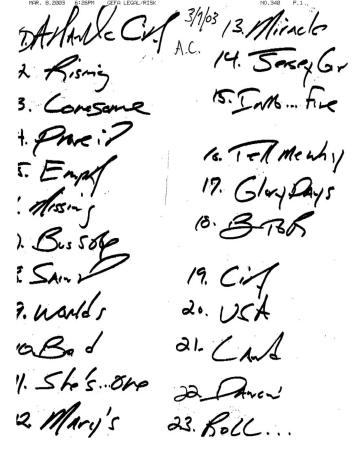 MAR. 8.2003 6:26PM GEFA LEGAL/RISK NO.340 P.1
3/7/03
A.C.
Atlantic City
2. Rising
3. Lonesome
4. Prove it
5. Empty
Missing
7. Bus Stop
Saint
9. Worlds
10. Bad
11. She's...one
12. Mary's
13. Miracle
14. Jersey Gr
15. Into... Fire
16. Tell Me Why
17. Glory Days
18. BTOR
19. City
20. USA
21. Land
22. Dancin'
23. Roll...